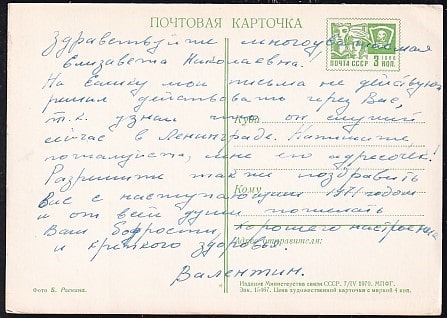 ПОЧТОВАЯ КАРТОЧКА
ПОЧТА СССР 3 КОП.
Здравствуйте многоуважаемая
Елизавета Николаевна.
На Симку мои письма не действуют
решил действовать через Вас,
т.к. узнал что он служит
Куда
сейчас в Ленинграде. Напишите,
пожалуйста, мне его адресочек!
Разрешите также поздравить
Кому
Вас с наступающим 1971 годом
и от всей души пожелать
Вам бодрости, хорошего настроения
и крепкого здоровья.
отправителя:
Валентин.
Фото Б. Раскина.
Издание Министерства связи СССР. 7/IV 1970. МПФГ.
Зак. Цена художественной карточки с маркой 4 коп.